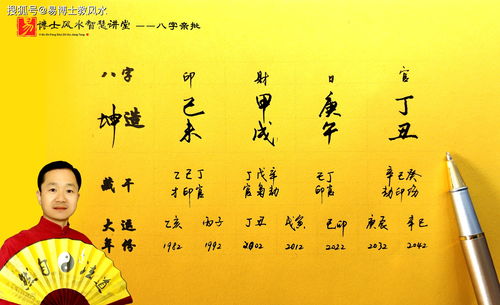 搜狐号@易博士教风水
易 博士风水智慧讲堂 ——八字亲批
八字 印 财 日 官
坤造 己未 甲戌 庚午 丁丑
藏干 乙己丁 丁戊辛 己丁 辛己癸
才印官 官枭劫 印官 劫印伤
大运 乙亥 丙子 丁丑 戊寅 己卯 庚辰 辛巳
年份 1982 1992 2002 2012 2022 2032 2042
然自法道